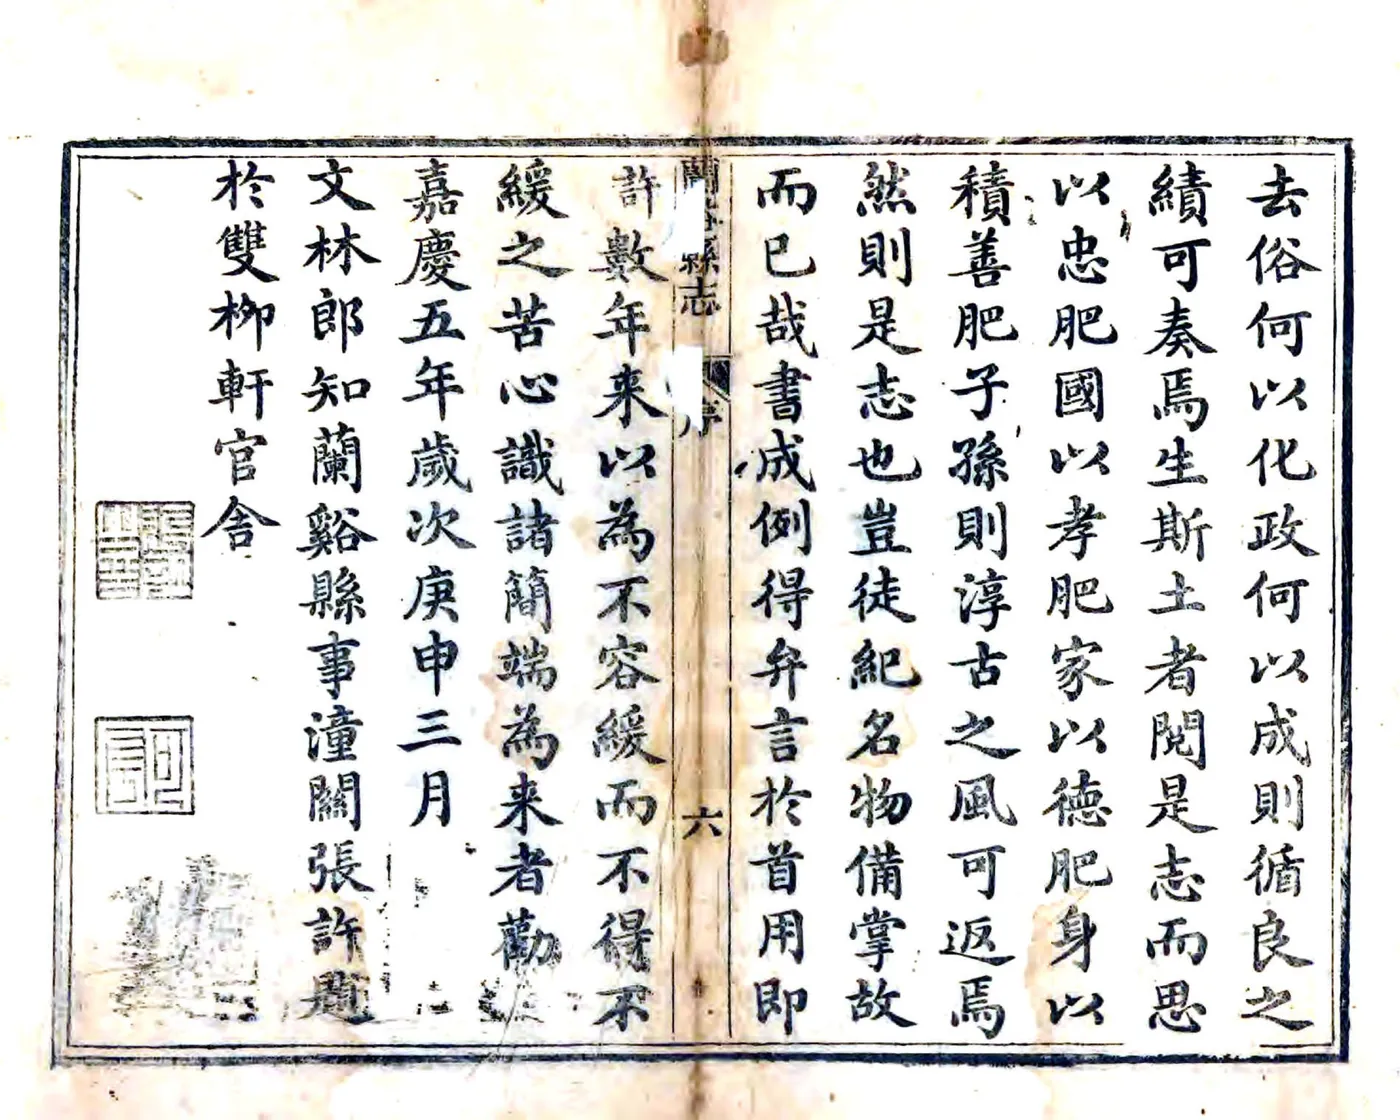 去俗何以化政何以成則循良之
績可奏焉生斯土者閱是志而思
以忠肥國以孝肥家以德肥身以
積善肥子孫則淳古之風可返焉
然則是志也豈徒紀名物備掌故
而已哉書成例得弁言於首用即
蘭谿縣志
序
六
許數年来以為不容緩而不得不
緩之苦心識諸簡端為来者勸
嘉慶五年歲次庚申三月
文林郎知蘭谿縣事潼關張許題
於雙柳軒官舍